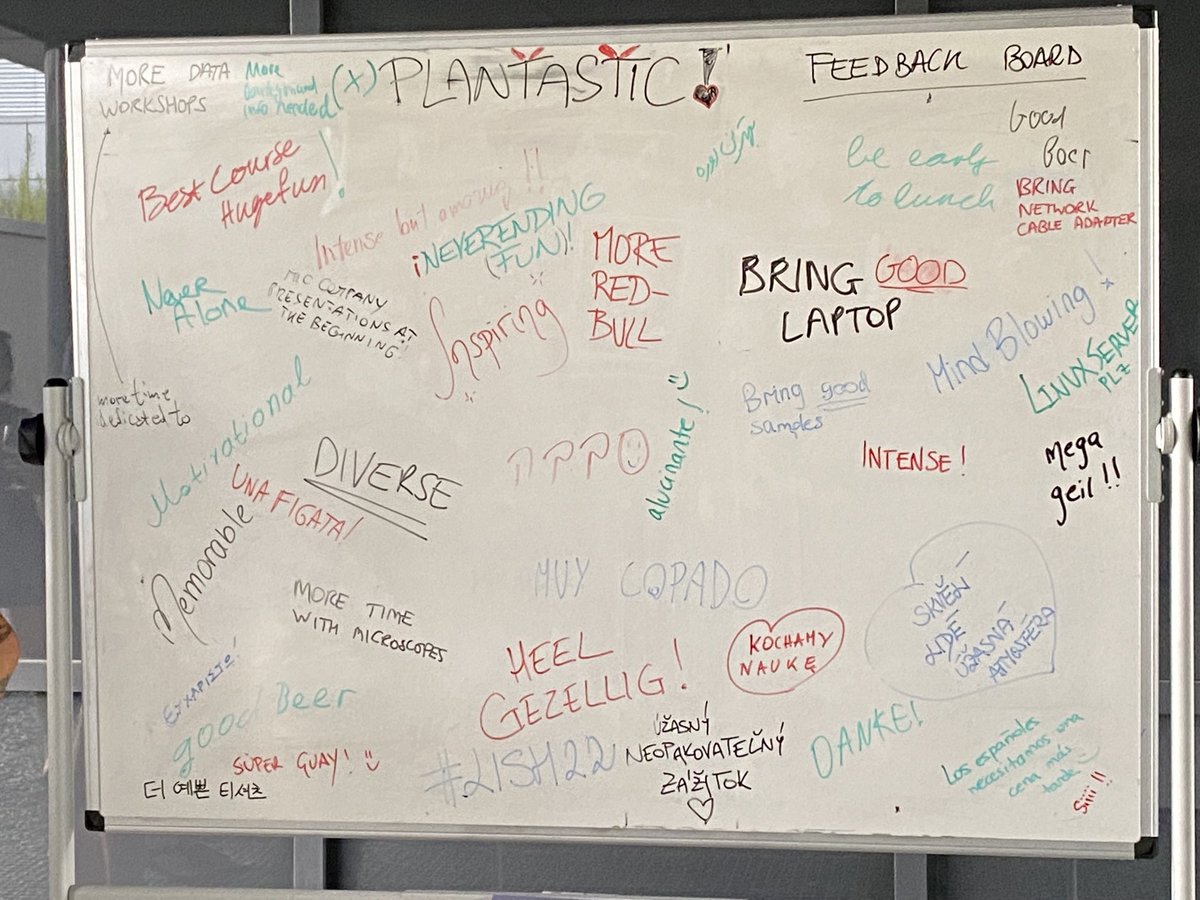 MORE DATA
WORKSHOPS
More
background
info needed
(x)
PLANTASTIC!
FEEDBACK BOARD
Good
Boer
be early
to lunch
BRING
NETWORK
CABLE ADAPTER
Best Course
Huge fun!
Intense but amazing!!
iNEVERENDING
(FUN)!
MORE
RED-
BULL
BRING GOOD
LAPTOP
Never
Alone
MIC COMPANY
PRESENTATIONS AT
THE BEGINNING!
Inspiring
Mind Blowing!
LINUX SERVER
PLZ
more time
dedicated to
Motivational
Bring good
samples
alucinante!
INTENSE!
mega
geil!!
DIVERSE
UNA FIGATA!
Memorable
MUY COPADO
MORE TIME
WITH MICROSCOPES
HEEL
GEZELLIG!
KOCHAMY
NAUKĘ
SKVĚLÍ
LIDÉ
ÚŽASNÁ
ATMOSFÉRA
ΕΥΧΑΡΙΣΤΩ!
good Beer
SÚPER GUAY! :)
더 예쁜 티셔츠
#LISH22
ÚŽASNÝ
NEOPAKOVATEĽNÝ
ZÁŽITOK
DANKE!
Los españoles
necesitamos una
cena más
tarde
Siiii!!